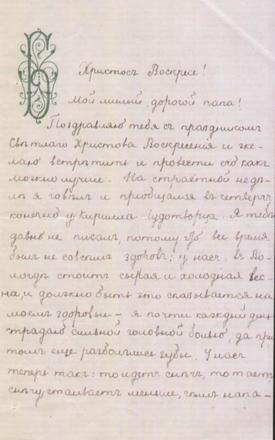 Христосъ Воскресе!
Мой милый, дорогой папа!
Поздравляю тебя съ праздникомъ
Свѣтлаго Христова Воскресенія и же-
лаю встрѣтить и провести его какъ
можно лучше. На страстной недѣ-
лѣ я говѣлъ и пріобщался въ четвергъ,
конечно у Кирилла Чудотворца. Я тебѣ
давно не писалъ, потому что все время
былъ не совсѣмъ здоровъ; у насъ, въ Во-
логдѣ стоитъ сырая и холодная вес-
на, и должно быть это сказывается на
моемъ здоровьи – я почти каждый день
страдаю сильной головной болью, да при
томъ еще разболѣлись зубы. У насъ
теперь такъ: то идетъ снѣгъ, то таетъ
снѣгу стаиваетъ меньше, чѣмъ напа-